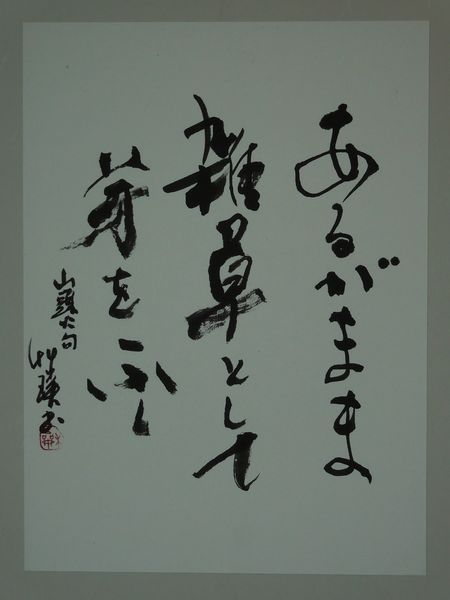 あるがまま
雑草として
芽をふく
山頭火句